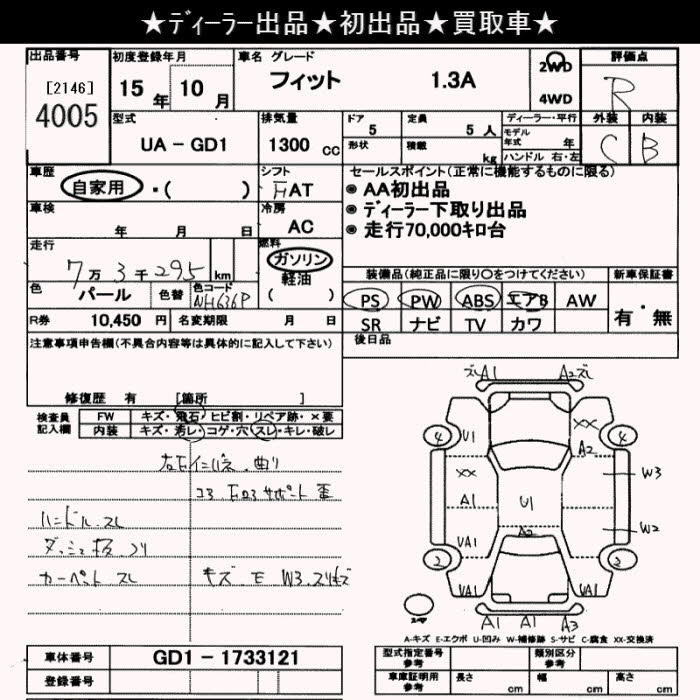 ★ディーラー出品★初出品★買取車★
出品番号
[2146]
4005
初度登録年月
15 年 10 月
車名 グレード
フィット 1.3A
2WD
4WD
評価点
R
型式
UA - GD1
排気量
1300 cc
ドア
5
定員
5 人
形状
積載
kg
ディーラー・平行
モデル年式 年
ハンドル 右・左
外装
C
内装
B
車歴
自家用 ・( )
シフト
FAT
セールスポイント(正常に機能するものに限る)
◉ AA初出品
◉ ディーラー下取り出品
◉ 走行70,000キロ台
車検
年 月 日
冷房
AC
走行
7万 3千 295 km
燃料
ガソリン
軽油
( )
色
パール
色替
色コード
NH636P
装備品(純正品に限り〇をつけてください)
新車保証書
PS PW ABS エアB AW
SR ナビ TV カワ
有 ・ 無
R券 10,450 円
名変期限 月 日
後日品
注意事項申告欄(不具合内容等は具体的に記入して下さい)
修復歴 有 [箇所 ]
検査員記入欄
FW キズ・飛石・ヒビ割・リペア跡・×要
内装 キズ・汚レ・コゲ・穴・スレ・キレ・破レ
左右インパネ 曲り
コアサポート 歪
ハンドル スレ
カーペット スレ
キズ・E W3.スリキズ
ズレA1 A2ズレ
4 U1 XX A2 4
XX W3
A1 U1 A1
A2 W2
UA1 UA1
2 2
UA1 UA1
A1 A1 A3
スペア
A-キズ E-エクボ U-凹み W-補修跡 S-サビ C-腐食 XX-交換済
車体番号
GD1 - 1733121
登録番号
型式指定番号
参考
類別区分
参考
車庫証明用
参考
長さ cm
幅 cm
高さ cm